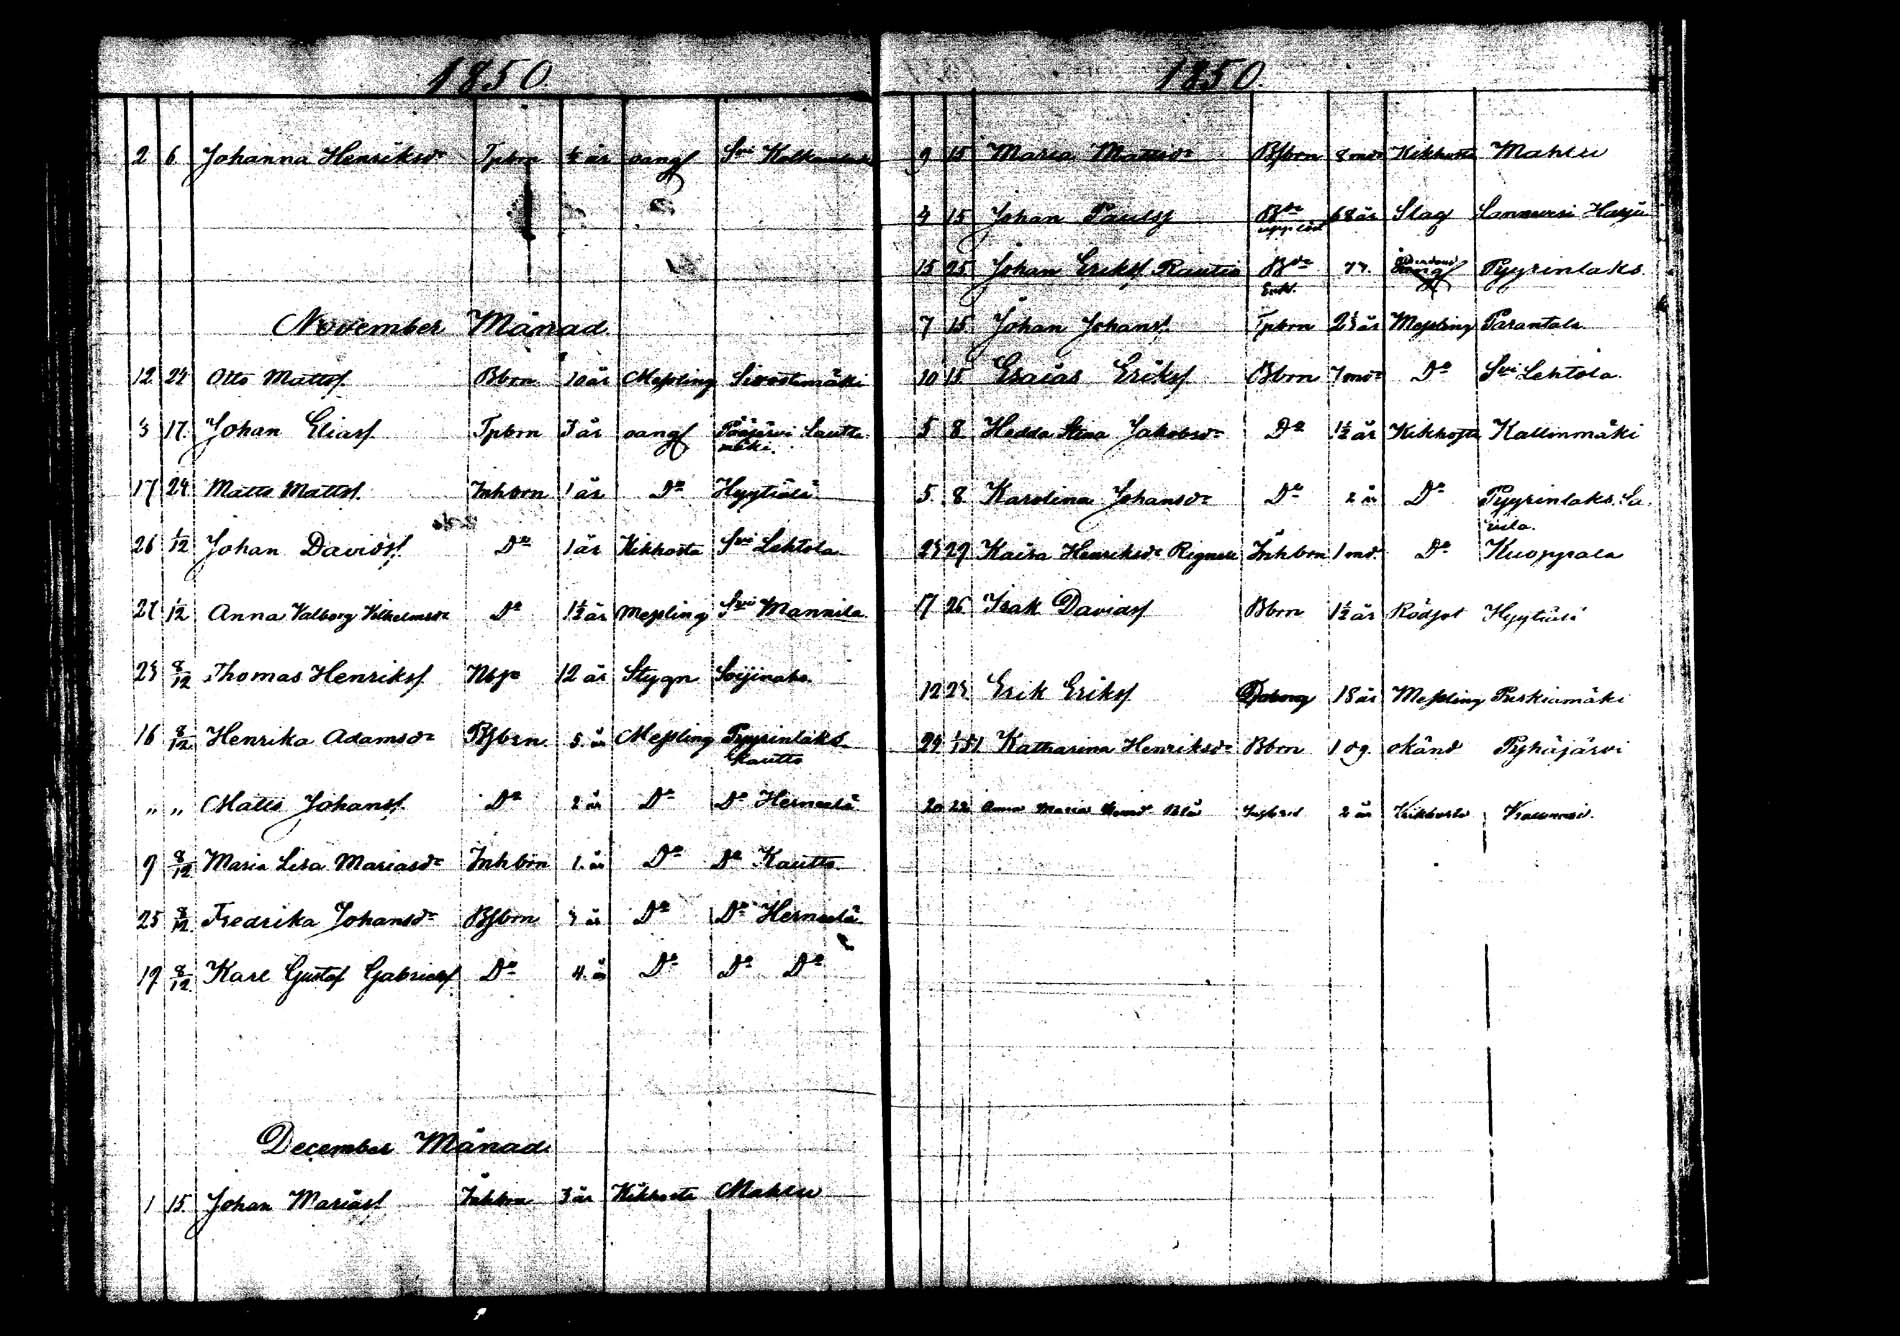 1850.
2 6 Johanna Henriksdr Tpbrn ½ år oangf Svi
November Månad.
12 24 Otto Mattsf. Bbrn 10 år Messling
3 17. Johan Eliasf. Tpbrn 3 år oangf Pääjärvi Kautto
mäki.
17 24 Matts Mattsf. Inhbrn 1 år Do Hyytiälä
26 1/12 Johan Davidsf. Do 1 år Kikhosta Svi Lehtola
27 1/12 Anna Valborg Vilhelmsdr Do 1½ år Messling Svi Mannila
23 8/12 Thomas Henriksf. 12 år Stygn
16 8/12 Henrika Adamsdr Bfbrn. 5 år Messling Pyyrinlaks
Kautto
„ „ Matts Johansf. Do 2 år Do Do Herneelä
9 8/12 Maria Lisa Mariasdr Inhbrn 1 år Do Do Kautto
25 8/12 Fredrika Johansdr Bfbrn år Do Do Herneelä
19 8/12 Karl Gustaf Gabrielsf. Do 4 år Do Do Do
December Månad.
1 15. Johan Mariasf. Inhbrn 3 år Kikhosta Mahlu
1850.
9 15 Maria Mattsdr Bfbrn 8 mdr Kikhosta Mahlu
4 15 Johan Paulsf 68 år Slag Harju
15 25 Johan Eriksf Rautio Pyyrinlaks
Enkl.
7 15 Johan Johansf. Tpbrn 2½ år Messling Parantala
10 15 Esaias Eriksf. Bbrn 7 mdr Do Svi Lehtola
5 8 Hedda Stina Jakobsdr Do 1½ år Kikhosta Kallinmäki
5. 8 Karolina Johansdr Do 2 år Do Pyyrinlaks. Sa
vila.
23 29 Kaisa Henriksdr Inhbrn 1 md. Do Kuoppala
17 26 Isak Davidsf Bbrn 1½ år Rödsot Hyytiälä
12 23 Erik Eriksf 18 år Messling
24 1/1 51 Katharina Henriksdr Bbrn 1 dg. okänd Pyhäjärvi
20 22 Anna Maria 2 år Kikhosta